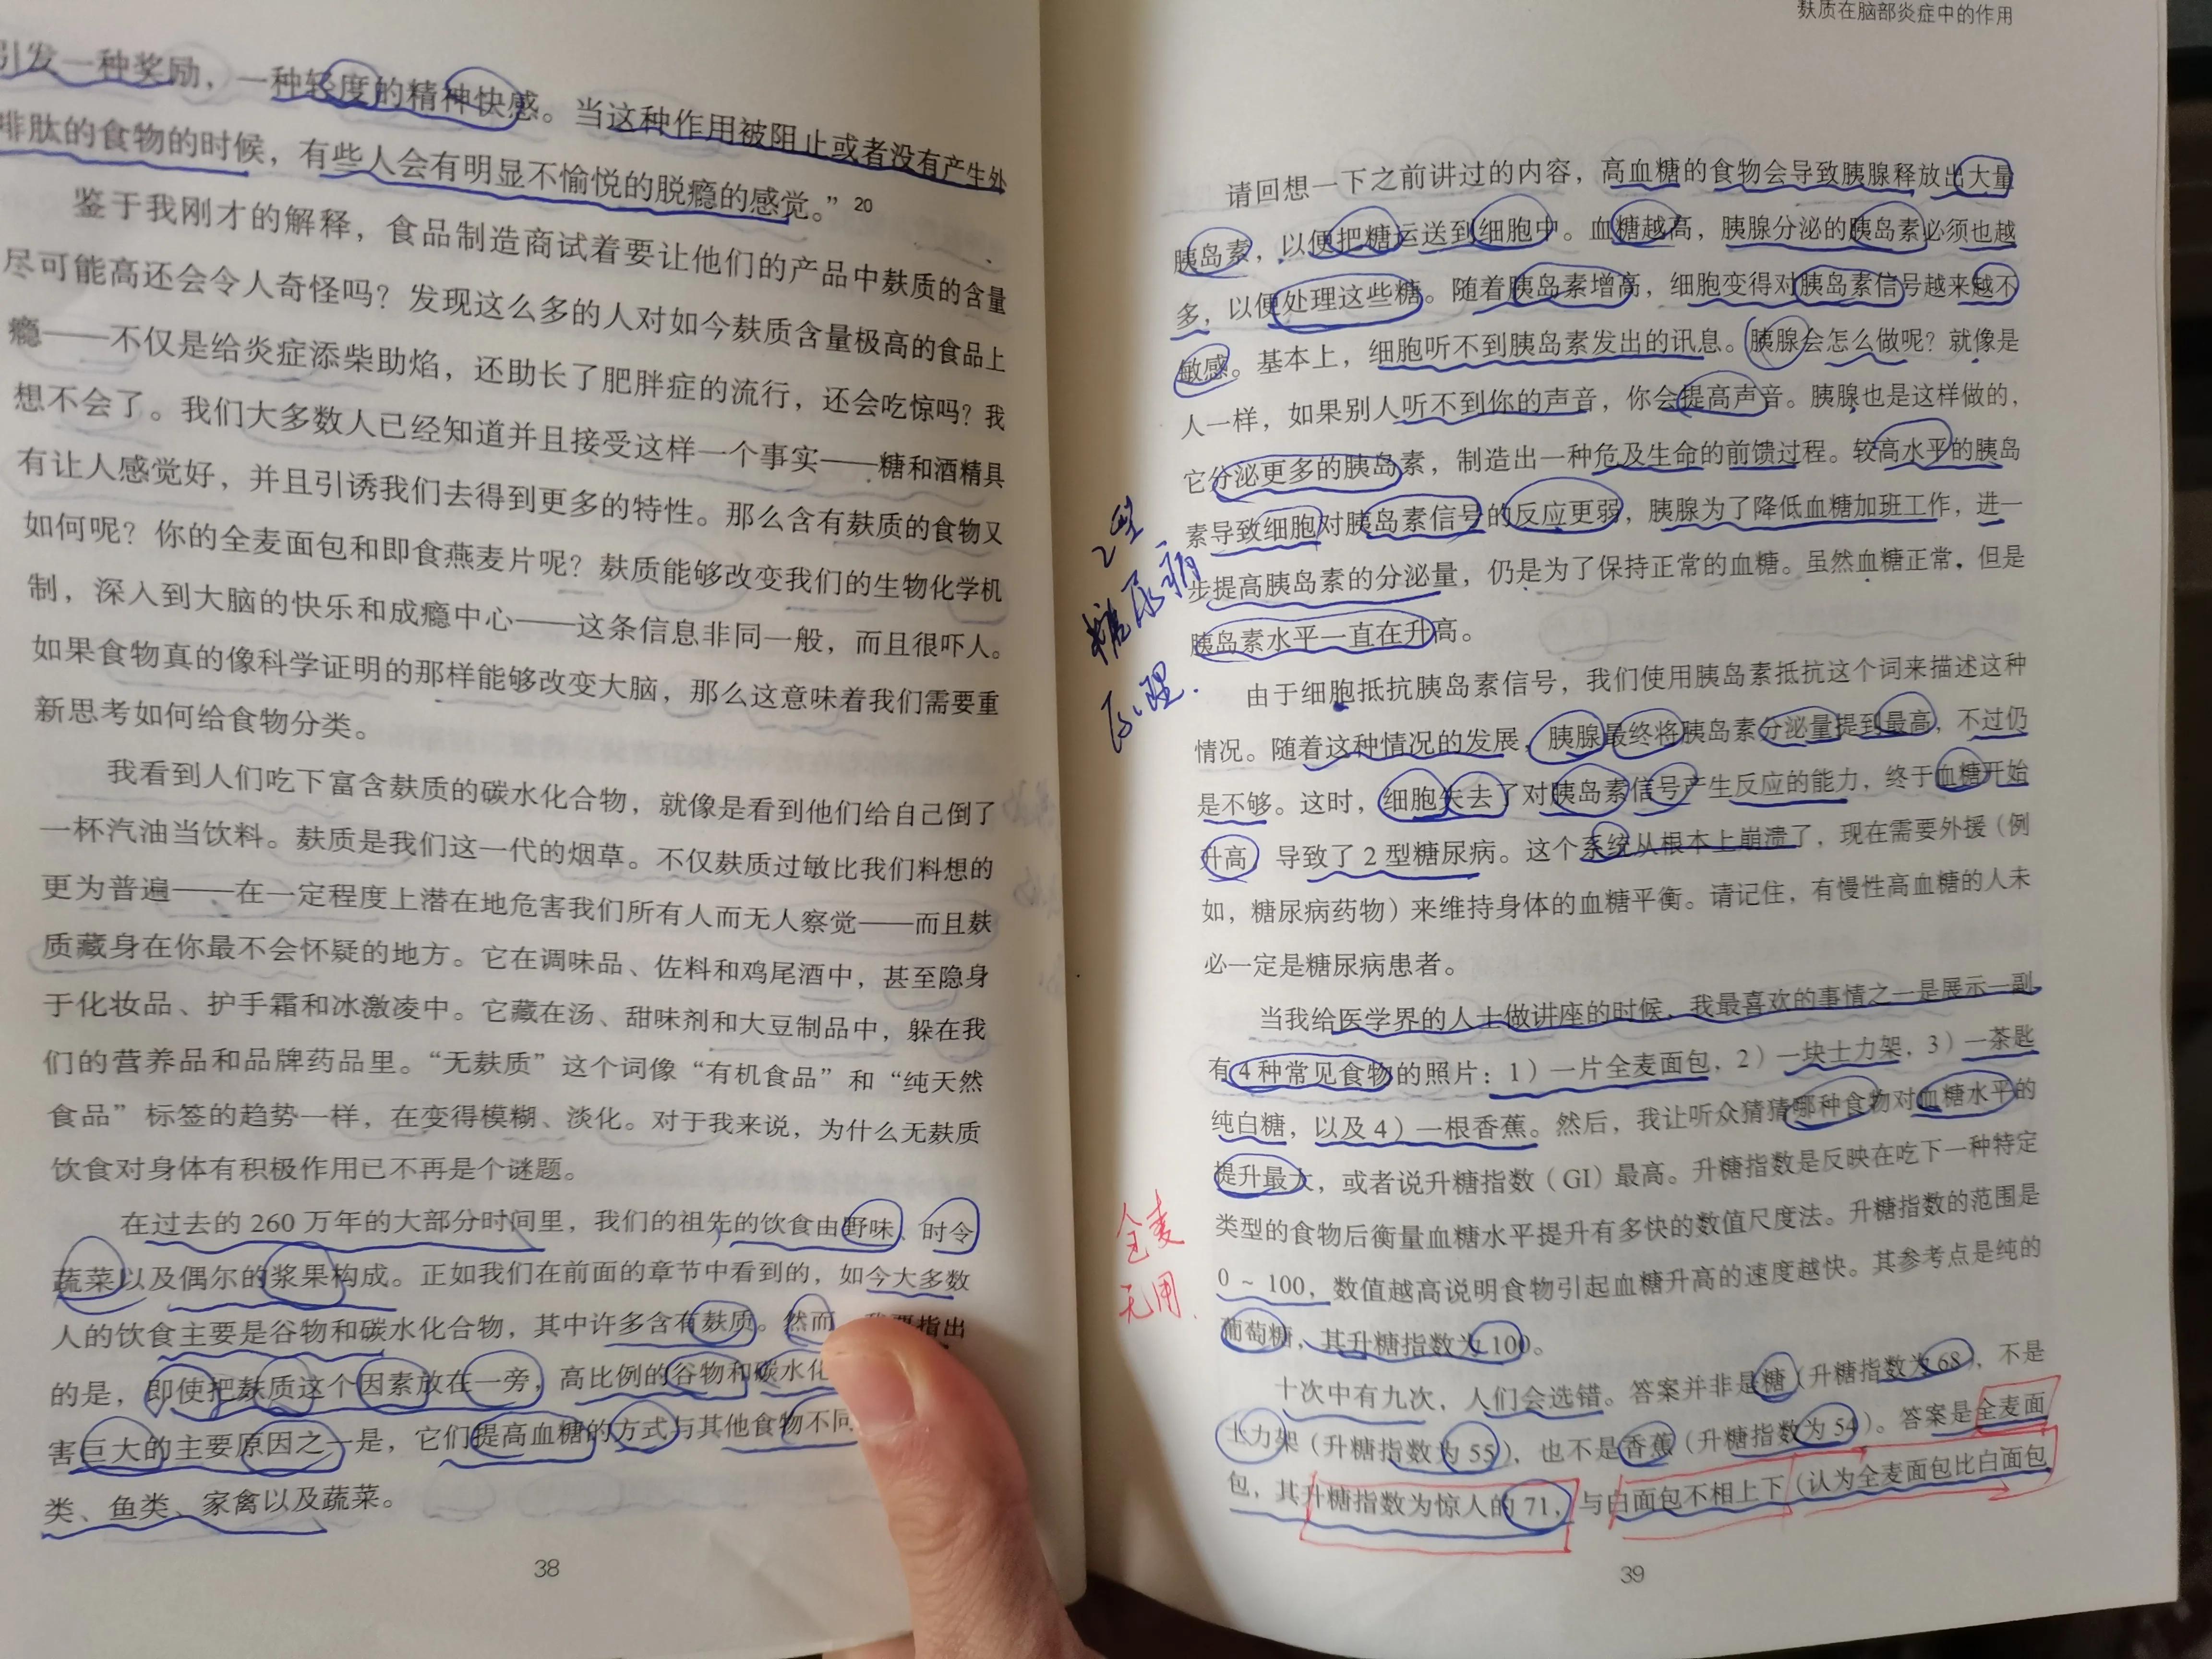 引发一种奖励，一种轻度的精神快感。当这种作用被阻止或者没有产生外
啡肽的食物的时候，有些人会有明显不愉悦的脱瘾的感觉。”20
鉴于我刚才的解释，食品制造商试着要让他们的产品中麸质的含量
尽可能高还会令人奇怪吗？发现这么多的人对如今麸质含量极高的食品上
瘾——不仅是给炎症添柴助焰，还助长了肥胖症的流行，还会吃惊吗？我
想不会了。我们大多数人已经知道并且接受这样一个事实——糖和酒精具
有让人感觉好，并且引诱我们去得到更多的特性。那么含有麸质的食物又
如何呢？你的全麦面包和即食燕麦片呢？麸质能够改变我们的生物化学机
制，深入到大脑的快乐和成瘾中心——这条信息非同一般，而且很吓人。
如果食物真的像科学证明的那样能够改变大脑，那么这意味着我们需要重
新思考如何给食物分类。
我看到人们吃下富含麸质的碳水化合物，就像是看到他们给自己倒了
一杯汽油当饮料。麸质是我们这一代的烟草。不仅麸质过敏比我们料想的
更为普遍——在一定程度上潜在地危害我们所有人而无人察觉——而且麸
质藏身在你最不会怀疑的地方。它在调味品、佐料和鸡尾酒中，甚至隐身
于化妆品、护手霜和冰激凌中。它藏在汤、甜味剂和大豆制品中，躲在我
们的营养品和品牌药品里。“无麸质”这个词像“有机食品”和“纯天然
食品”标签的趋势一样，在变得模糊、淡化。对于我来说，为什么无麸质
饮食对身体有积极作用已不再是个谜题。
在过去的 260 万年的大部分时间里，我们的祖先的饮食由野味、时令
蔬菜以及偶尔的浆果构成。正如我们在前面的章节中看到的，如今大多数
人的饮食主要是谷物和碳水化合物，其中许多含有麸质。然而 要指出
的是，即使把麸质这个因素放在一旁，高比例的谷物和碳水化
害巨大的主要原因之一是，它们提高血糖的方式与其他食物不同
类、鱼类、家禽以及蔬菜。
38
麸质在脑部炎症中的作用
请回想一下之前讲过的内容，高血糖的食物会导致胰腺释放出大量
胰岛素，以便把糖运送到细胞中。血糖越高，胰腺分泌的胰岛素必须也越
多，以便处理这些糖。随着胰岛素增高，细胞变得对胰岛素信号越来越不
敏感。基本上，细胞听不到胰岛素发出的讯息。胰腺会怎么做呢？就像是
人一样，如果别人听不到你的声音，你会提高声音。胰腺也是这样做的，
它分泌更多的胰岛素，制造出一种危及生命的前馈过程。较高水平的胰岛
素导致细胞对胰岛素信号的反应更弱，胰腺为了降低血糖加班工作，进一
步提高胰岛素的分泌量，仍是为了保持正常的血糖。虽然血糖正常，但是
胰岛素水平一直在升高。
2型
糖尿病
原理.
由于细胞抵抗胰岛素信号，我们使用胰岛素抵抗这个词来描述这种
情况。随着这种情况的发展，胰腺最终将胰岛素分泌量提到最高，不过仍
是不够。这时，细胞失去了对胰岛素信号产生反应的能力，终于血糖开始
升高，导致了 2 型糖尿病。这个系统从根本上崩溃了，现在需要外援（例
如，糖尿病药物）来维持身体的血糖平衡。请记住，有慢性高血糖的人未
必一定是糖尿病患者。
当我给医学界的人士做讲座的时候，我最喜欢的事情之一是展示一副
有 4 种常见食物的照片：1）一片全麦面包，2）一块士力架，3）一茶匙
纯白糖，以及 4）一根香蕉。然后，我让听众猜猜哪种食物对血糖水平的
提升最大，或者说升糖指数（GI）最高。升糖指数是反映在吃下一种特定
类型的食物后衡量血糖水平提升有多快的数值尺度法。升糖指数的范围是
0 ~ 100，数值越高说明食物引起血糖升高的速度越快。其参考点是纯的
葡萄糖，其升糖指数为 100。
全麦
无用.
十次中有九次，人们会选错。答案并非是糖（升糖指数为 68），不是
士力架（升糖指数为 55），也不是香蕉（升糖指数为 54）。答案是全麦面
包，其升糖指数为惊人的 71，与白面包不相上下（认为全麦面包比白面包
39